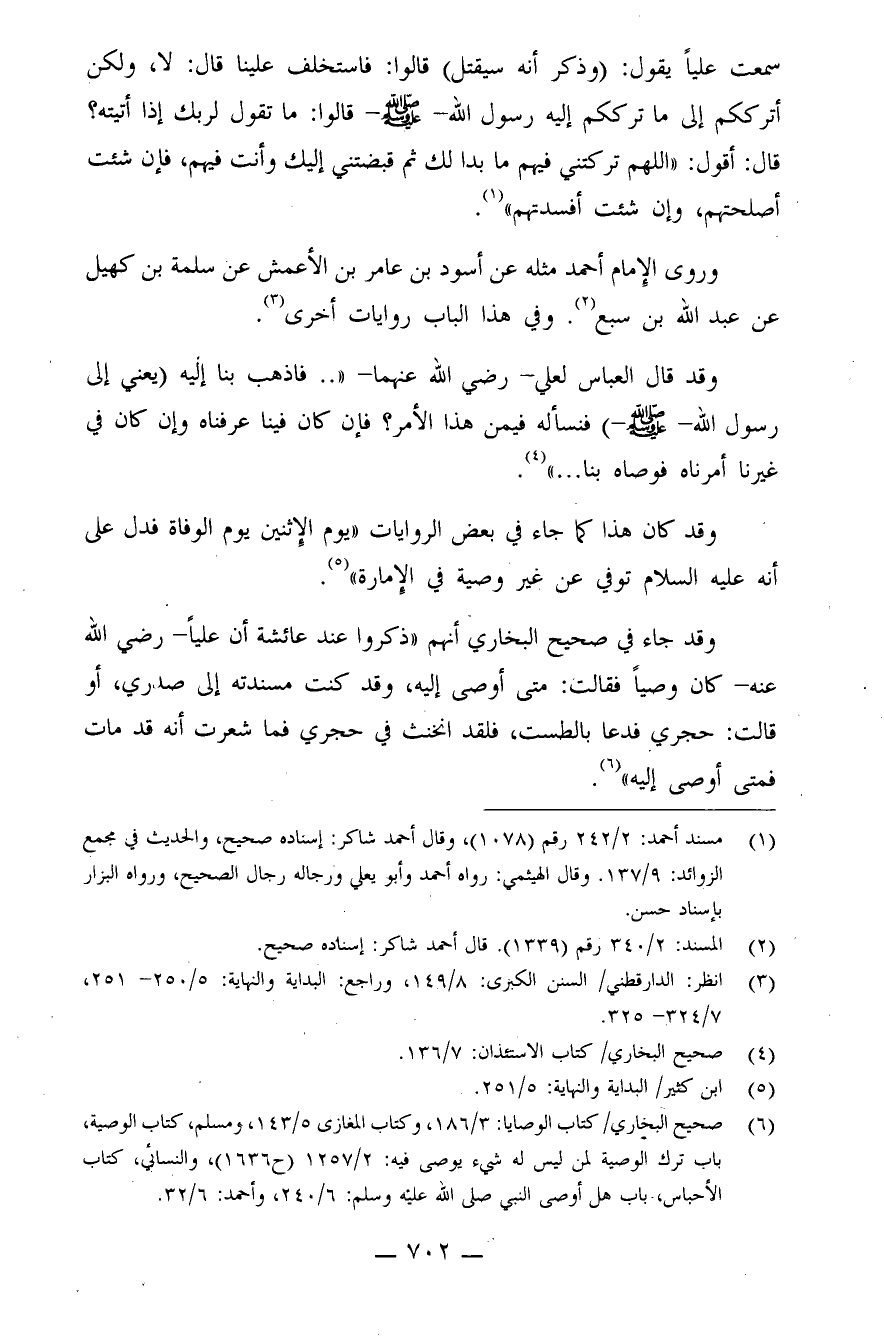 سمعت علياً يقول: (وذكر أنه سيقتل) قالوا: فاستخلف علينا قال: لا، ولكن
أترككم إلى ما ترككم إليه رسول الله– ﷺ– قالوا: ما تقول لربك إذا أتيته؟
قال: أقول: «اللهم تركتني فيهم ما بدا لك ثم قبضتني إليك وأنت فيهم، فإن شئت
أصلحتهم، وإن شئت أفسدتهم»(١).
وروى الإمام أحمد مثله عن أسود بن عامر بن الأعمش عن سلمة بن كهيل
عن عبد الله بن سبع(٢). وفي هذا الباب روايات أخرى(٣).
وقد قال العباس لعلي– رضي الله عنهما– «.. فاذهب بنا إليه (يعني إلى
رسول الله– ﷺ–) فنسأله فيمن هذا الأمر؟ فإن كان فينا عرفناه وإن كان في
غيرنا أمرناه فوصاه بنا...»(٤).
وقد كان هذا كما جاء في بعض الروايات «يوم الإثنين يوم الوفاة فدل على
أنه عليه السلام توفي عن غير وصية في الإمارة»(٥).
وقد جاء في صحيح البخاري أنهم «ذكروا عند عائشة أن علياً– رضي الله
عنه– كان وصياً فقالت: متى أوصى إليه، وقد كنت مسندته إلى صدري، أو
قالت: حجري فدعا بالطست، فلقد انخنث في حجري فما شعرت أنه قد مات
فمتى أوصى إليه»(٦).
(١) مسند أحمد: ٢٤٢/٢ رقم (١٠٧٨)، وقال أحمد شاكر: إسناده صحيح، والحديث في مجمع
الزوائد: ١٣٧/٩. وقال الهيثمي: رواه أحمد وأبو يعلي ورجاله رجال الصحيح، ورواه البزار
بإسناد حسن.
(٢) المسند: ٣٤٠/٢ رقم (١٣٣٩). قال أحمد شاكر: إسناده صحيح.
(٣) انظر: الدارقطني/ السنن الكبرى: ١٤٩/٨، وراجع: البداية والنهاية: ٢٥٠/٥– ٢٥١،
٣٢٤/٧– ٣٢٥.
(٤) صحيح البخاري/ كتاب الاستئذان: ١٣٦/٧.
(٥) ابن كثير/ البداية والنهاية: ٢٥١/٥.
(٦) صحيح البخاري/ كتاب الوصايا: ١٨٦/٣، وكتاب المغازى ١٤٣/٥، ومسلم، كتاب الوصية،
باب ترك الوصية لمن ليس له شيء يوصى فيه: ١٢٥٧/٢ (ح١٦٣٦)، والنسائي، كتاب
الأحباس، باب هل أوصى النبي صلى الله عليه وسلم: ٢٤٠/٦، وأحمد: ٣٢/٦.
— ٧٠٢ —